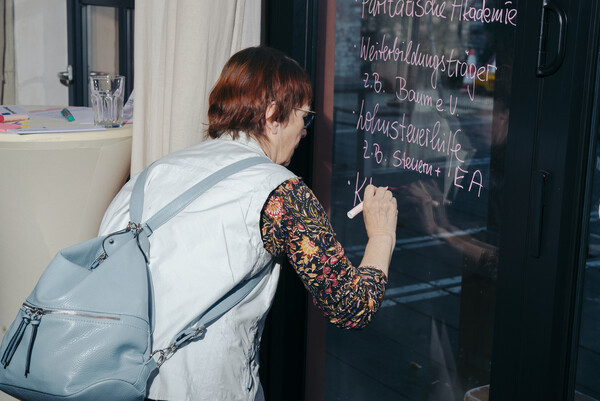 Paritätische Akademie
· Weiterbildungsträger
z.B. Baum e.V.
· Lohnsteuerhilfe
z.B. Steuern + EA
· K